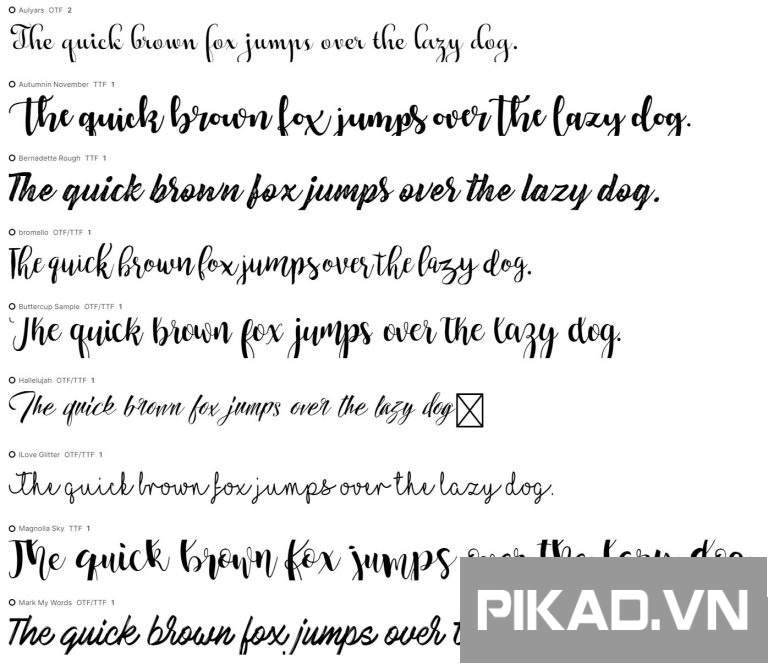 Aulyars OTF 2
The quick brown fox jumps over the lazy dog.
Autumnin November TTF 1
The quick brown fox jumps over the lazy dog.
Bernadette Rough TTF 1
The quick brown fox jumps over the lazy dog.
bromello OTF/TTF 1
The quick brown fox jumps over the lazy dog.
Buttercup Sample OTF/TTF 1
The quick brown fox jumps over the lazy dog.
Hallelujah OTF/TTF 1
The quick brown fox jumps over the lazy dog
ILove Glitter OTF/TTF 1
The quick brown fox jumps over the lazy dog.
Magnolia Sky TTF 1
The quick brown fox jumps over the lazy dog
Mark My Words OTF/TTF 1
The quick brown fox jumps over
PIKAD.VN